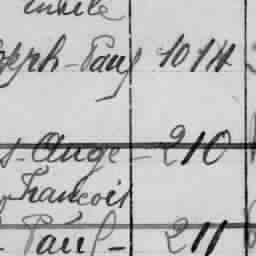 Paul 1014
Ange - 210
François
- Paul - 211